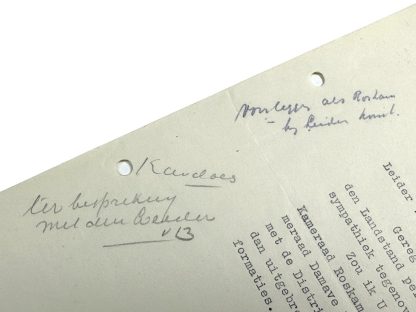 voorleggen als Roskam
bij Leider komt.
ter bespreking
met den Leider
Leider
Gereg
den Landstand per
sympathiek tegenov
Zou ik U
Kameraad Roskam
meraad Damave
met de Distri
dan uitgebre
formaties.